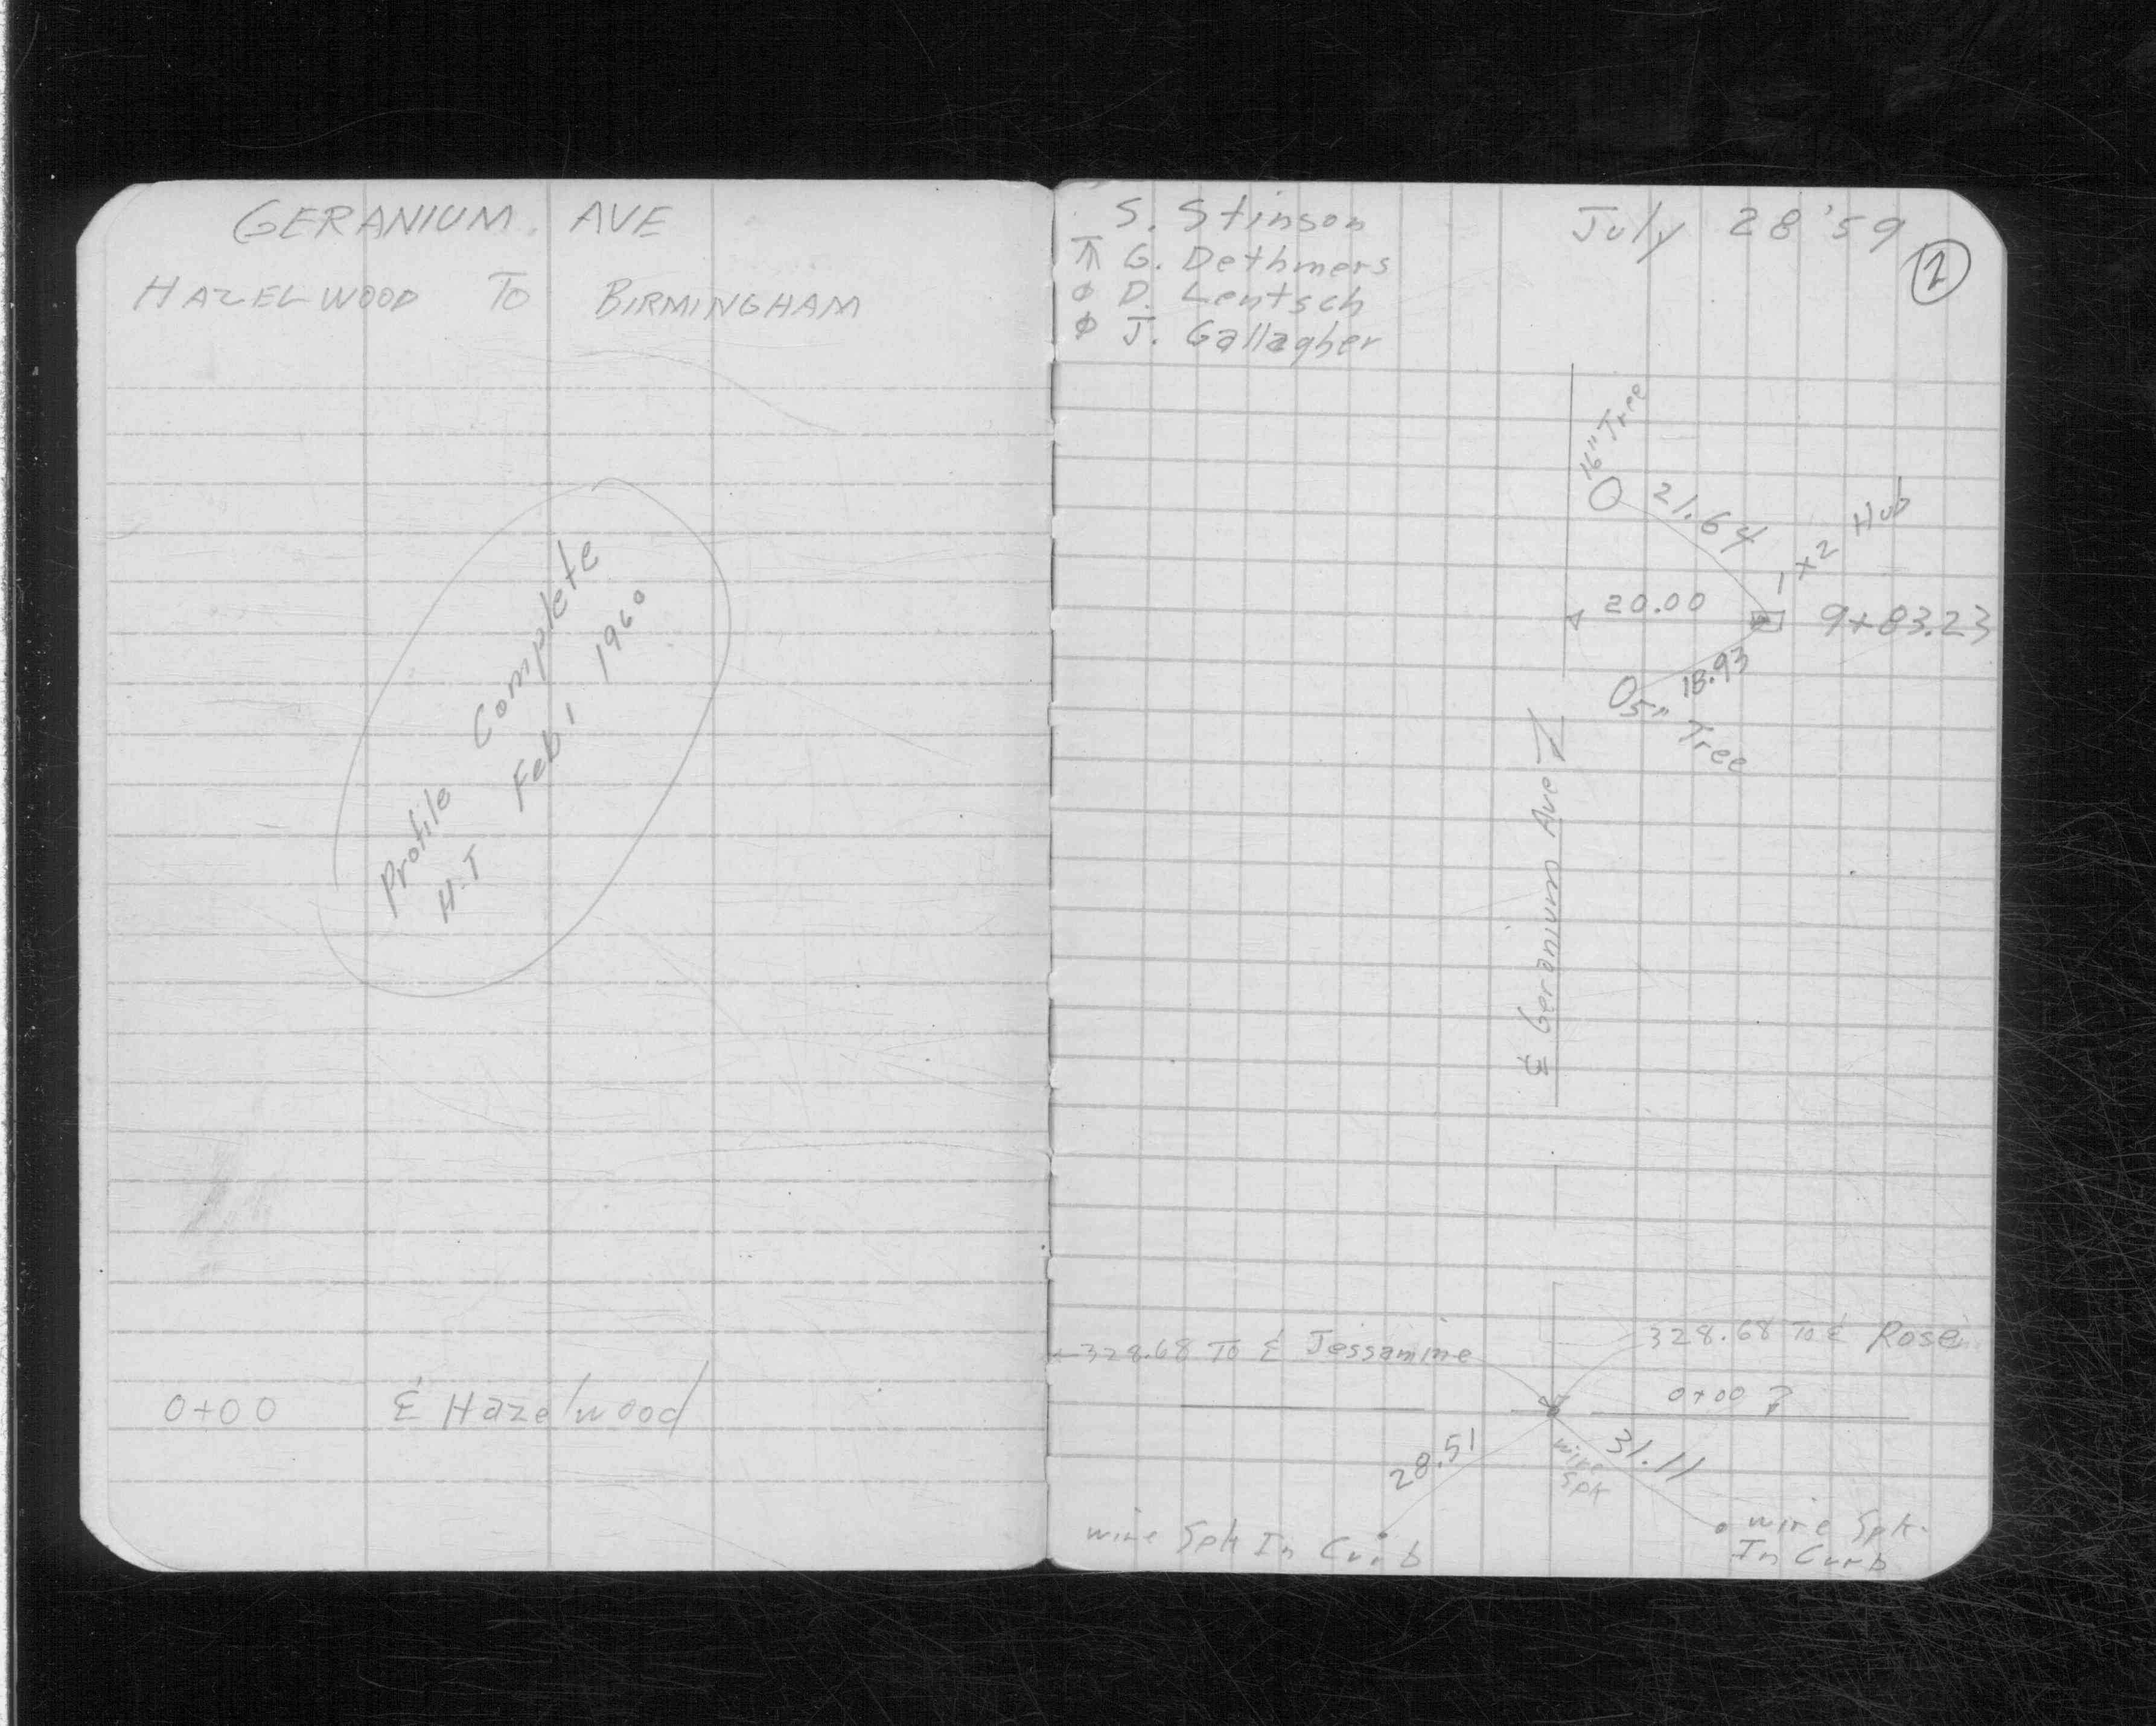 GERANIUM. AVE
HAZELWOOD TO BIRMINGHAM
Profile Complete
H.J Feb 1 1960
0+00 ℄ Hazelwood
S. Stinson
⊼ G. Dethmers
φ D. Lentsch
φ J. Gallagher
July 28 '59
2
16" Tree
21.64
1x2 Hub
20.00
9+83.23
18.93
5" Tree
℄ Geranium Ave
328.68 To ℄ Jessamine
328.68 To ℄ Rose
0+00
28.51
wire Spk
31.11
wire Spk In Curb
wire Spk.
In Curb